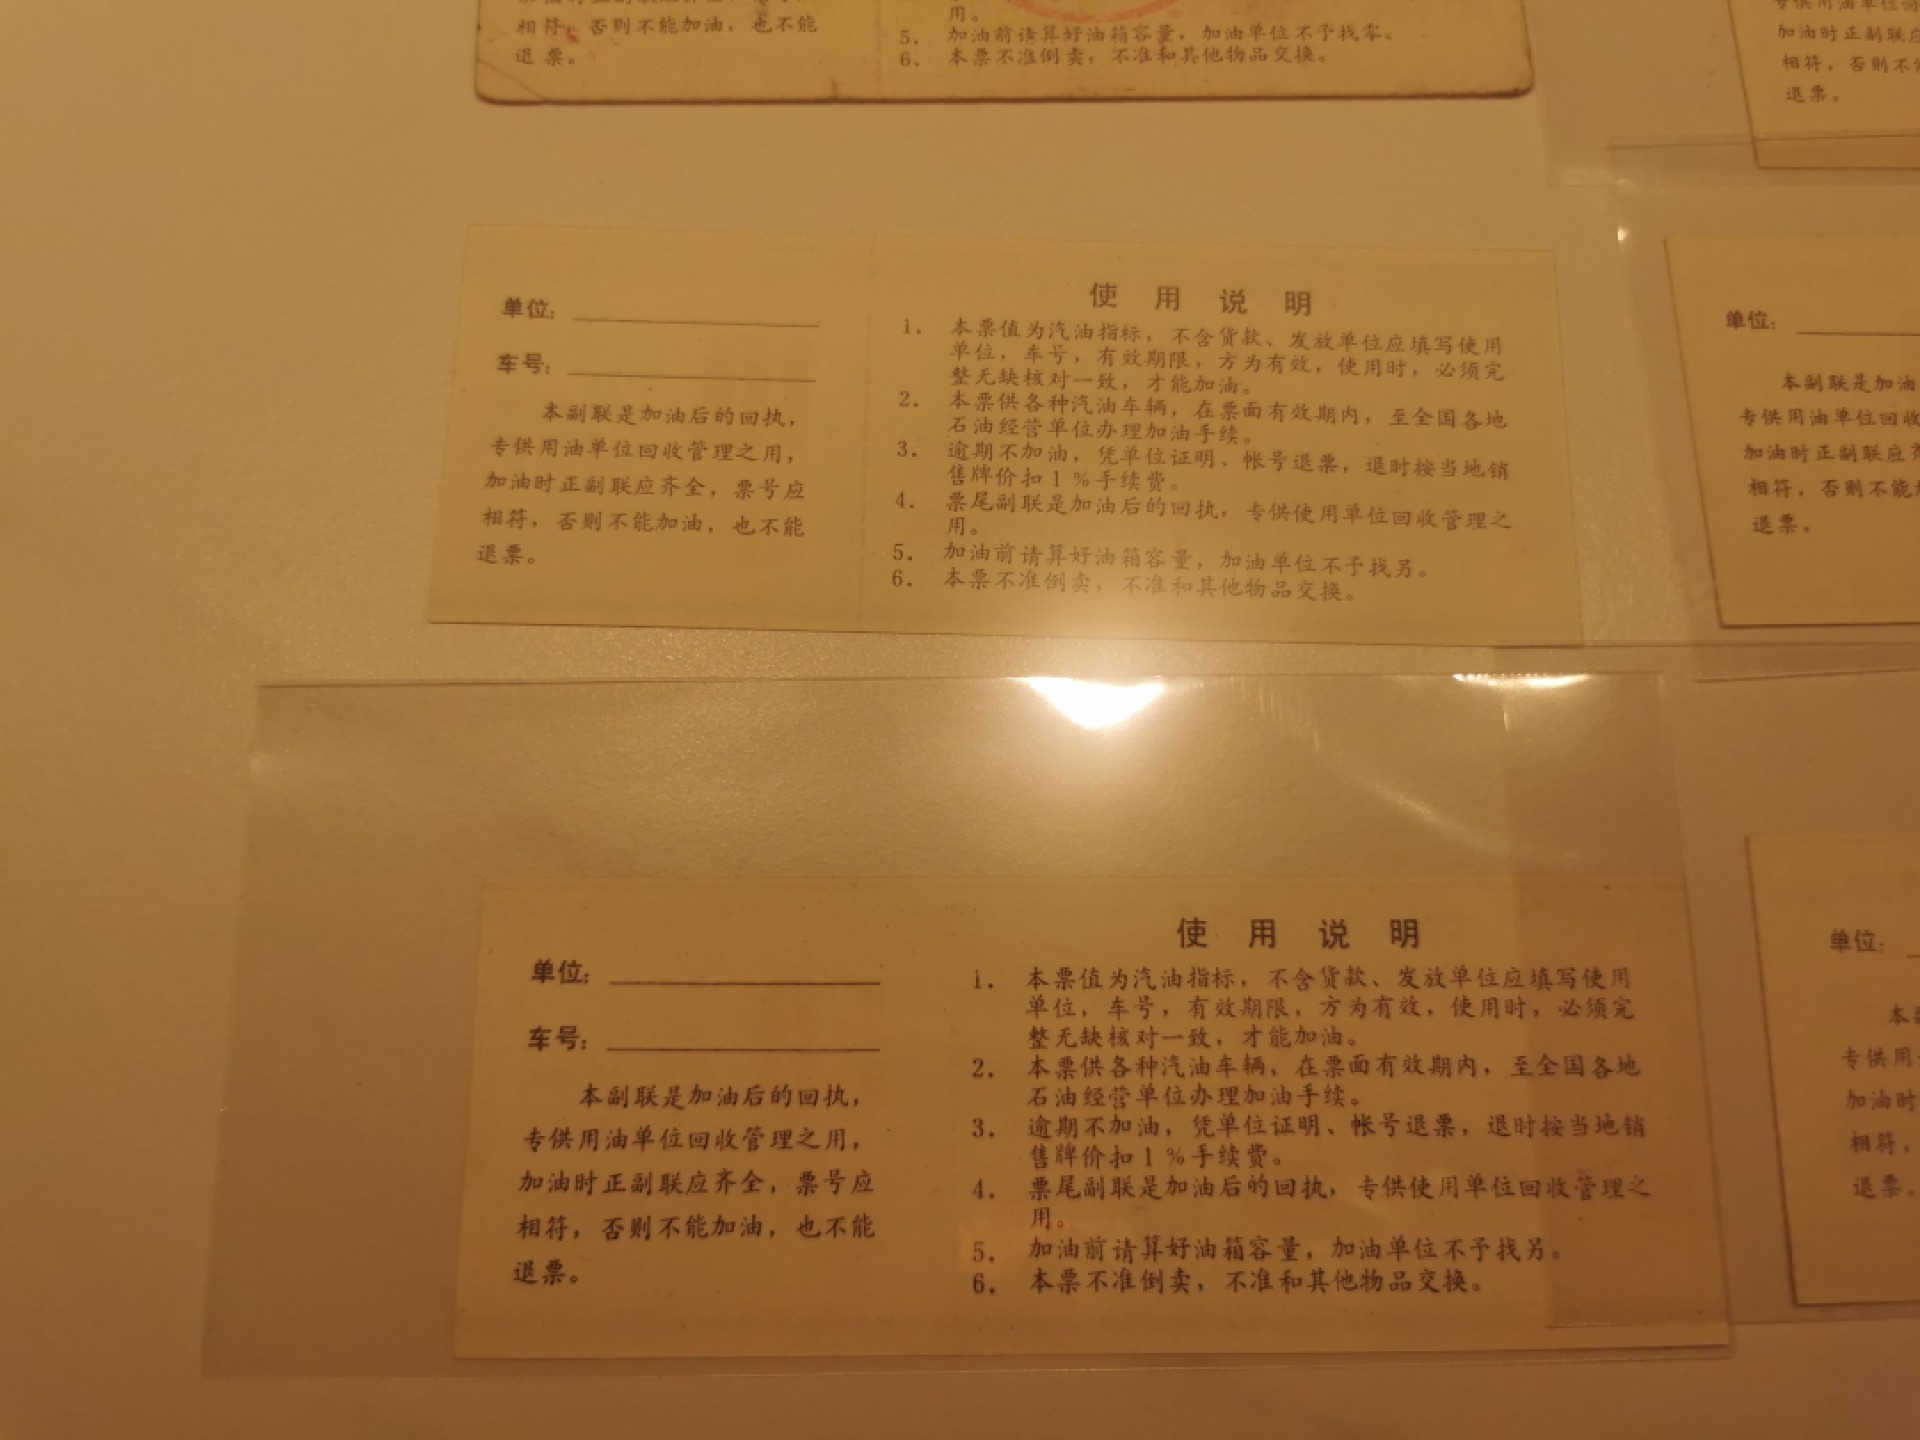 相符，否则不能加油，也不能
退票。
用。
5. 加油前请算好油箱容量，加油单位不予找零。
6. 本票不准倒卖，不准和其他物品交换。
专供用油单位
加油时正副联应
相符，否则不
退票。
单位：
车号：
本副联是加油后的回执，
专供用油单位回收管理之用，
加油时正副联应齐全，票号应
相符，否则不能加油，也不能
退票。
使用说明
1. 本票值为汽油指标，不含货款、发放单位应填写使用
单位，车号，有效期限，方为有效，使用时，必须完
整无缺核对一致，才能加油。
2. 本票供各种汽油车辆，在票面有效期内，至全国各地
石油经营单位办理加油手续。
3. 逾期不加油，凭单位证明、帐号退票，退时按当地销
售牌价扣1%手续费。
4. 票尾副联是加油后的回执，专供使用单位回收管理之
用。
5. 加油前请算好油箱容量，加油单位不予找另。
6. 本票不准倒卖，不准和其他物品交换。
单位：
本副联是加油
专供用油单位回收
加油时正副联应
相符，否则不能
退票。
单位：
车号：
本副联是加油后的回执，
专供用油单位回收管理之用，
加油时正副联应齐全，票号应
相符，否则不能加油，也不能
退票。
使用说明
1. 本票值为汽油指标，不含货款、发放单位应填写使用
单位，车号，有效期限，方为有效，使用时，必须完
整无缺核对一致，才能加油。
2. 本票供各种汽油车辆，在票面有效期内，至全国各地
石油经营单位办理加油手续。
3. 逾期不加油，凭单位证明、帐号退票，退时按当地销
售牌价扣1%手续费。
4. 票尾副联是加油后的回执，专供使用单位回收管理之
用。
5. 加油前请算好油箱容量，加油单位不予找另。
6. 本票不准倒卖，不准和其他物品交换。
单位：
本
专供用
加油时
相符，
退票。